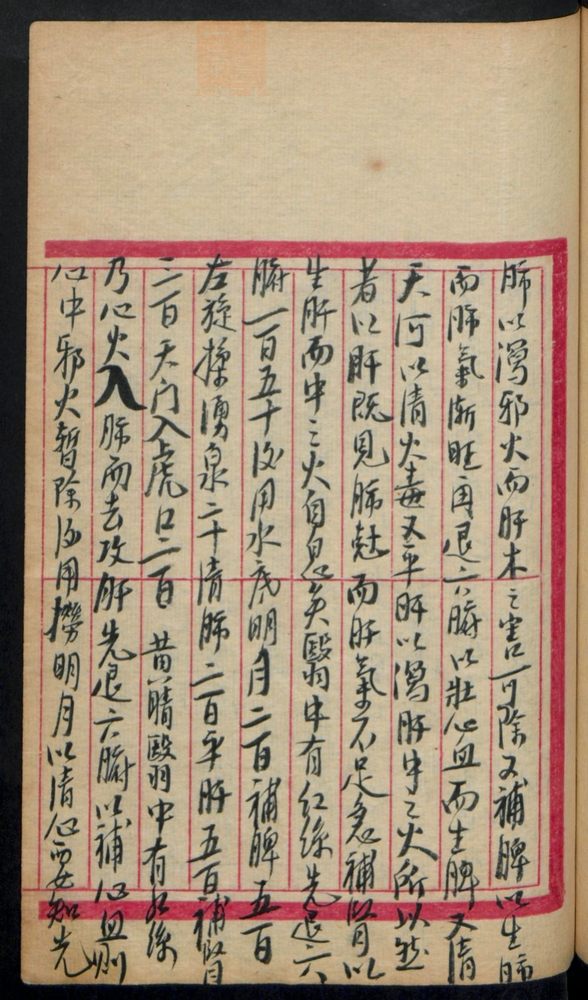 肺以瀉邪火而肝木之害可除又補脾以生肺
而肺氣漸旺再退六腑以壯心血而生脾又清
天河以清火毒又平肝以瀉肝中之火所以然
者以肝既見肺尅而肝氣不足急補腎以
生肝而中之火自息矣翳中有紅絲先退六
腑一百五十後用水底明月二百補脾五百
左旋揉湧泉二十清肺二百平肝五百補腎
三百天门入虎口二百 黄睛翳中有红絲
乃心火入肺而去攻肝先退六腑以補心血則
心中邪火暫除後用撈明月以清心要知先